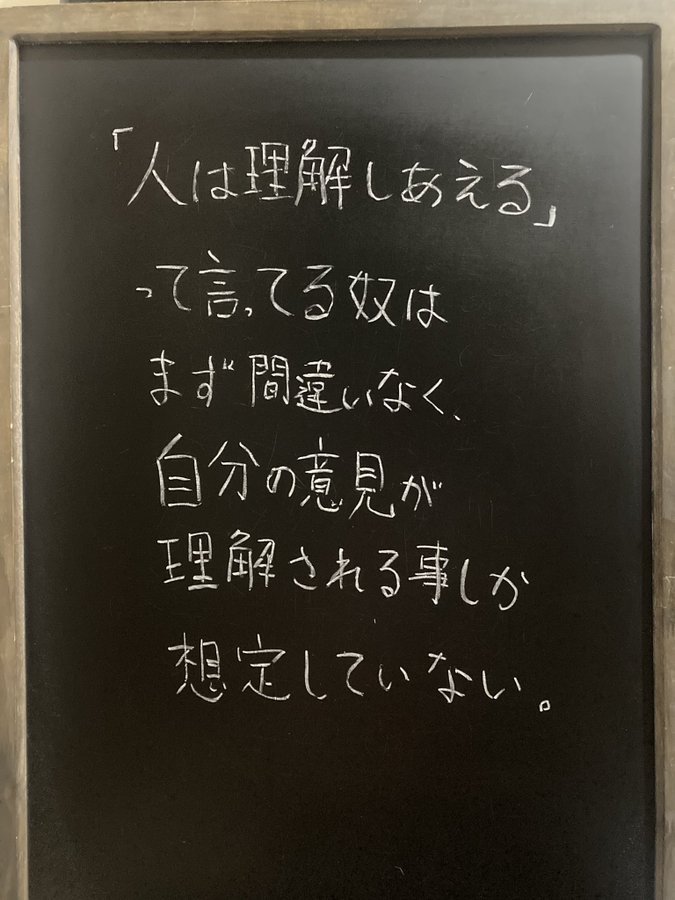 「人は理解しあえる」
って言ってる奴は
まず間違いなく、
自分の意見が
理解される事しか
想定していない。